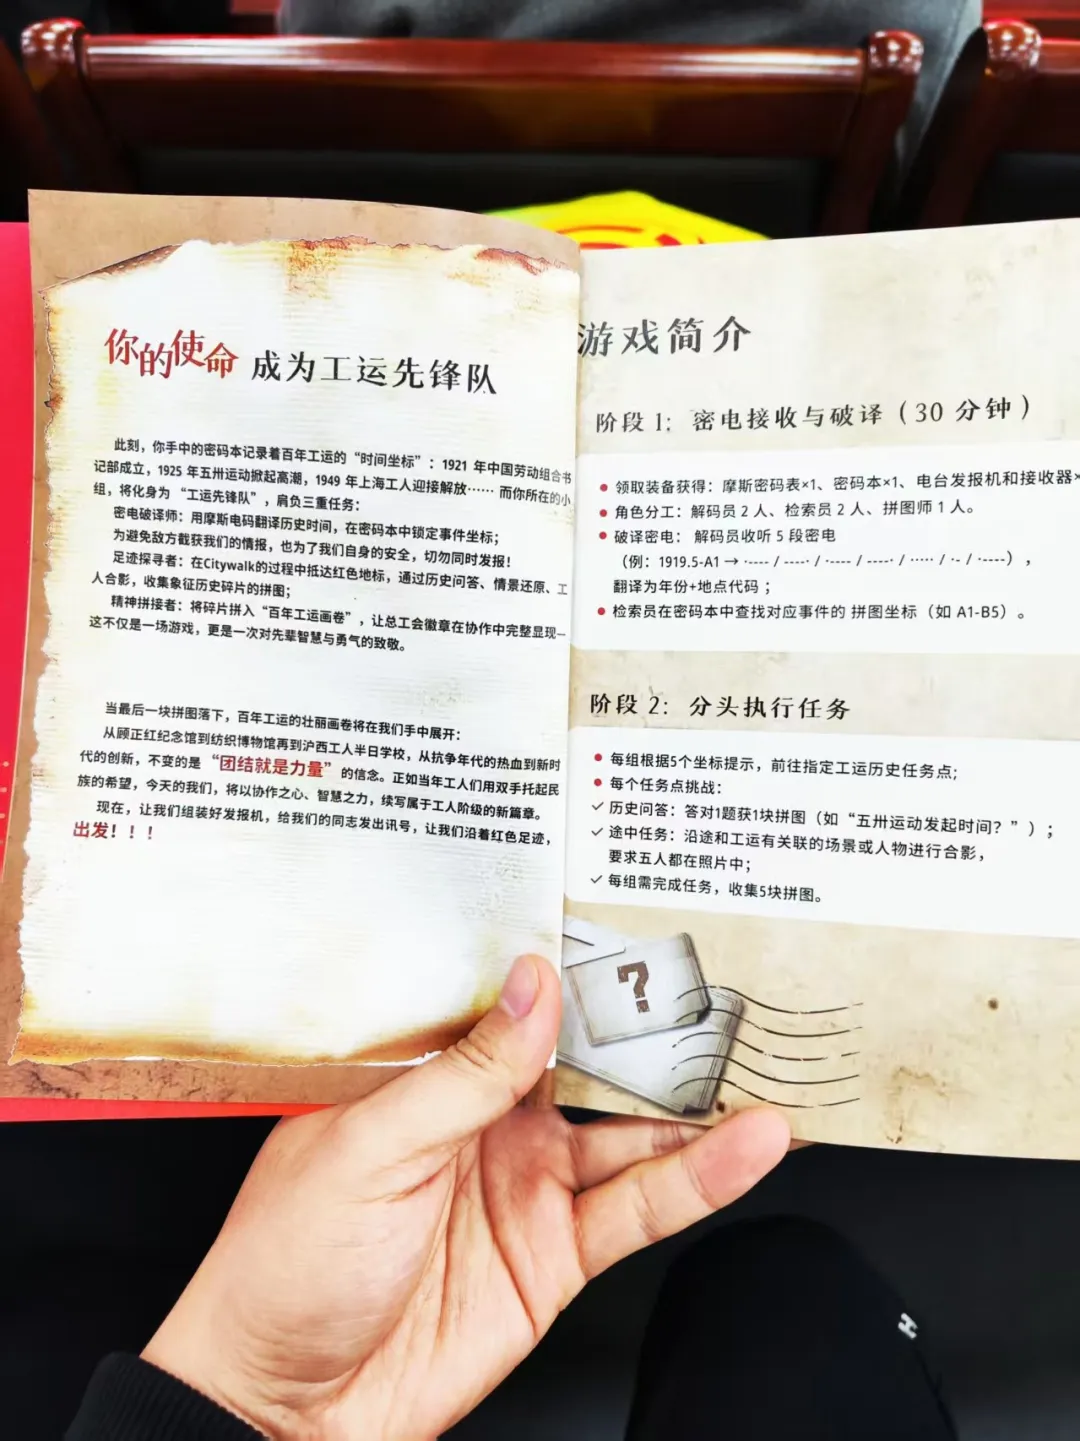 你的使命 成为工运先锋队
此刻，你手中的密码本记录着百年工运的“时间坐标”：1921 年中国劳动组合书
记部成立，1925 年五卅运动掀起高潮，1949 年上海工人迎接解放…… 而你所在的小
组，将化身为 “工运先锋队”，肩负三重任务：
密电破译师：用摩斯电码翻译历史时间，在密码本中锁定事件坐标；
为避免敌方截获我们的情报，也为了我们自身的安全，切勿同时发报！
足迹探寻者：在Citywalk的过程中抵达红色地标，通过历史问答、情景还原、工
人合影，收集象征历史碎片的拼图；
精神拼接者：将碎片拼入“百年工运画卷”，让总工会徽章在协作中完整显现—
这不仅是一场游戏，更是一次对先辈智慧与勇气的致敬。
当最后一块拼图落下，百年工运的壮丽画卷将在我们手中展开：
从顾正红纪念馆到纺织博物馆再到沪西工人半日学校，从抗争年代的热血到新时
代的创新，不变的是 “团结就是力量” 的信念。正如当年工人们用双手托起民
族的希望，今天的我们，将以协作之心、智慧之力，续写属于工人阶级的新篇章。
现在，让我们组装好发报机，给我们的同志发出讯号，让我们沿着红色足迹，
出发！！！
游戏简介
阶段 1：密电接收与破译（30 分钟）
● 领取装备获得：摩斯密码表×1、密码本×1、电台发报机和接收器×
● 角色分工：解码员 2 人、检索员 2 人、拼图师 1 人。
● 破译密电： 解码员收听 5 段密电
（例：1919.5-A1 → ·---- / ----· / ·---- / ----· / ····· / ·- / ·----），
翻译为年份+地点代码；
● 检索员在密码本中查找对应事件的 拼图坐标（如 A1-B5）。
阶段 2：分头执行任务
● 每组根据5个坐标提示，前往指定工运历史任务点；
● 每个任务点挑战：
✓ 历史问答：答对1题获1块拼图（如“五卅运动发起时间？”）；
✓ 途中任务：沿途和工运有关联的场景或人物进行合影，
要求五人都在照片中；
✓ 每组需完成任务，收集5块拼图。
?
H